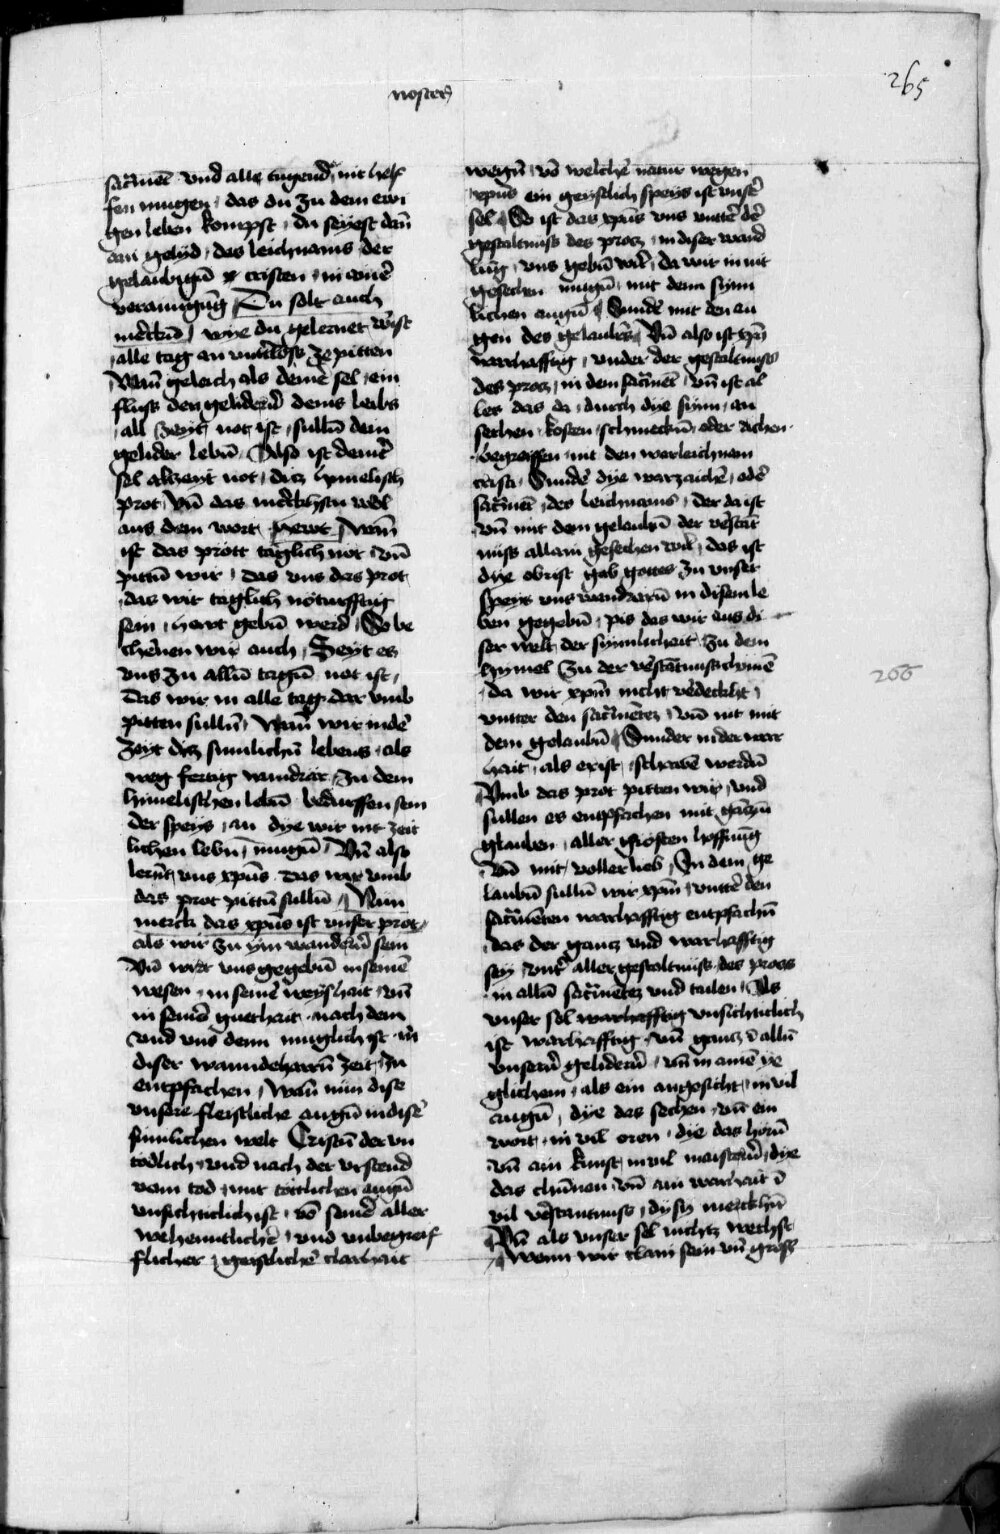 noster
265
sacrament vnd alle tugend nit helf
fen mugen das du zu dem ewi
gen leben kompst du seyest dan̄
ain gelyd des leichnams der
gelaubigū cristen in ainer
verainigūg Du solt auch
merkn̄ wye du gelernet wirst
alle tag an vnterloss ze pitten
Wan̄ geleich als deiner sel ein
fluss den gelidern deins leibs
all zeyt not ist sullū dein
gelider lebū Also ist deiner
sel alzeyt not ditz himelisch
prot Vn̄ das merkhstu wol
aus dem wort hewt wan̄
ist das prott taglich not vn̄
pittū wir das vns das prot
das wir taglich noturfftig
sein hewt gebū werd So be
chenen wir auch Seyt es
vns zu allū tagū not ist
das wir in alle tag dar vmb
pitten sullū Wan̄ wir in der
zeyt ditz sinlichū lebens als
weg fertig wandrar zu dem
himelischen lebū bedurffen sein
der speys an dye wir nit zeit
lichen lebū mugū Vn̄ also
lernt vns xp̄us das wir vmb
das prot pittū sullū Nun
merck das xp̄us ist vnser prot
als wir zu ym wandern sein
Vn̄ wirt vns gegebū in seinē
wesen in seiner weyshait vn̄
in seiner guethait nach dem
vnd vns denn muglich ist in
diser wanndeharrū zeit zu
entpfachen Wan̄ nun dise
vnsere fleischliche augū in diser
sinlichen welt Cristū der vn
todlich vnd nach der vrstend
vom tod mit tottlichen augū
vnsichticlich ist vō seiner aller
vnd vnbegreif
flicher geistlicher clarhait
wegū vō welcher natur wegen
xp̄us ein geystlich speys ist vnser
sel So ist das xp̄us vns vnter der
gestaltnuss des protz in diser wand
lūg vns gebū wirt da wir in nit
gesechen mugū mit dem synn
lichen augū Sunder mit den au
gen des gelaubēs Vn̄ also ist xp̄s
warhafftig vnder der gestaltnuss
des protz in dem sacrament vn̄ ist al
les das da durch dye synn an
sechen kosten schmeckū oder
begreiffen nit den war leichnam
cristi Sunder dye warzaichē oder
sacrament des leichnams der da ist
vn̄ mit dem gelaubū der verstāt
nuss allain gesechen wirt das ist
dye obrist gab gottes zu vnser
speys vns wandrarū in disem le
ben gegebū pis das wir aus di
ser welt der synnlicheit zu dem
hymel zu der verstātnuss chomē
da wir xp̄m nicht verdeckht
vntter den sacramētez vn̄ nit mit
dem gelaubū Sunder in der war
hait als er ist schawē werdū
Vmb das prot pitten wir vnd
sullen es entpfachen mit gāczū
glauben aller grosten hoffnūg
vn̄ mit voller lieb In dem ge
laubū sullū wir xp̄m vnter den
sacramenten warhafftig entpfachū
das der gantz vnd warhafftig
sey vnter aller gestaltnuss des protz
in allū sacramētez vnd tailen Als
vnser sel warhafftig vnsichticlich
ist warhafftig vn̄ gantz in allū
vnsern gelidern vn̄ in ainē ye
glichem als ein angesicht in vil
augū dye das sechen vn̄ ein
wort in vil oren die das horū
vn̄ ain kunst in vil maistern dye
das chūnen vn̄ ain warhait in
vil verstantnuss dy sy merckhū
Vn̄ als vnser sel nichtz wechst
Wenn wir clain sein vn̄ gross
266